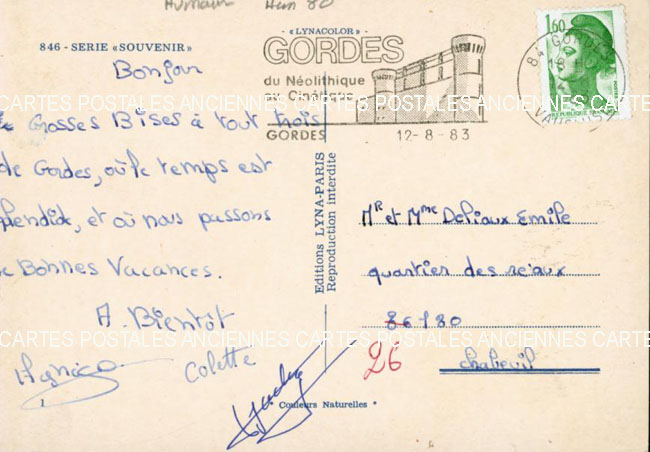 Humour Hum 80
846 - SERIE «SOUVENIR»
Bonjour
Grosses Bises à tout trois
de Gordes, où le temps est
splendide, et où nous passons
de Bonnes Vacances.
A. Bientôt
Colette
1
«LYNACOLOR»
GORDES
du Néolithique
au Cinétisme
GORDES 12-8-83
1,60
REPUBLIQUE
84 GORDES
VAUCLUSE
Editions LYNA-PARIS
Reproduction interdite
Mr et Mme Deliaux Emile
quartier des
86180
26
Chabeuil
Couleurs Naturelles
CARTES POSTALES ANCIENNES CARTES POSTALES ANCIENNES CARTES
CARTES POSTALES ANCIENNES CARTES POSTALES ANCIENNES CARTES